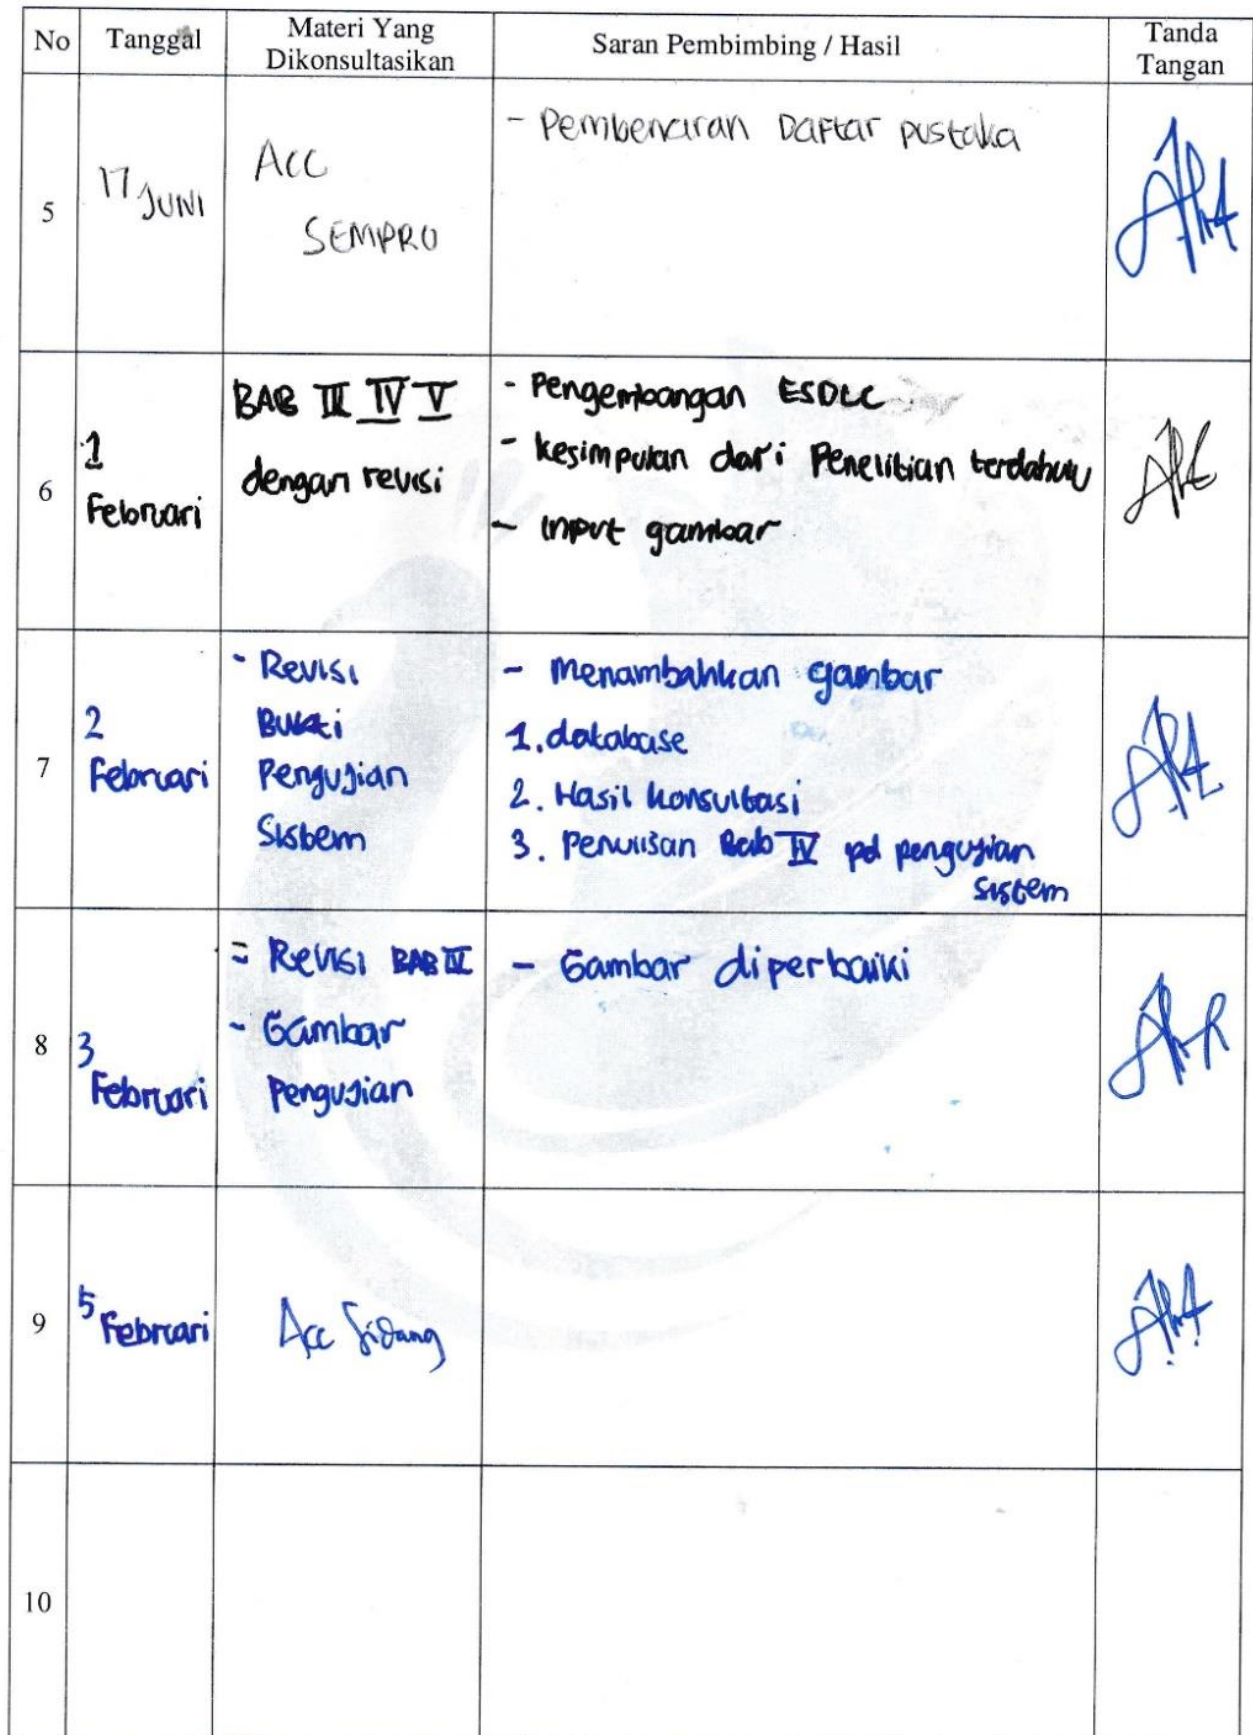 No Tanggal Materi Yang Dikonsultasikan Saran Pembimbing / Hasil Tanda Tangan
5
17 JUNI
ACC
SEMPRO
- Pembenaran Daftar pustaka
6
1
Februari
BAB III IV V
dengan revisi
- Pengembangan ESDLC
- kesimpulan dari Penelitian terdahulu
- input gambar
7
2
Februari
- Revisi
Bukti
Pengujian
Sistem
- Menambahkan gambar
1. database
2. Hasil konsultasi
3. Penulisan Bab IV pd pengujian
sistem
8
3
Februari
- Revisi BAB IV
- Gambar
Pengujian
- Gambar diperbaiki
9
5 Februari
Acc Sidang
10